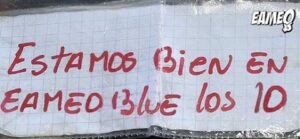 EAMEO
ESTAMOS BiEN EN
EAMEO BLUE LOS 10